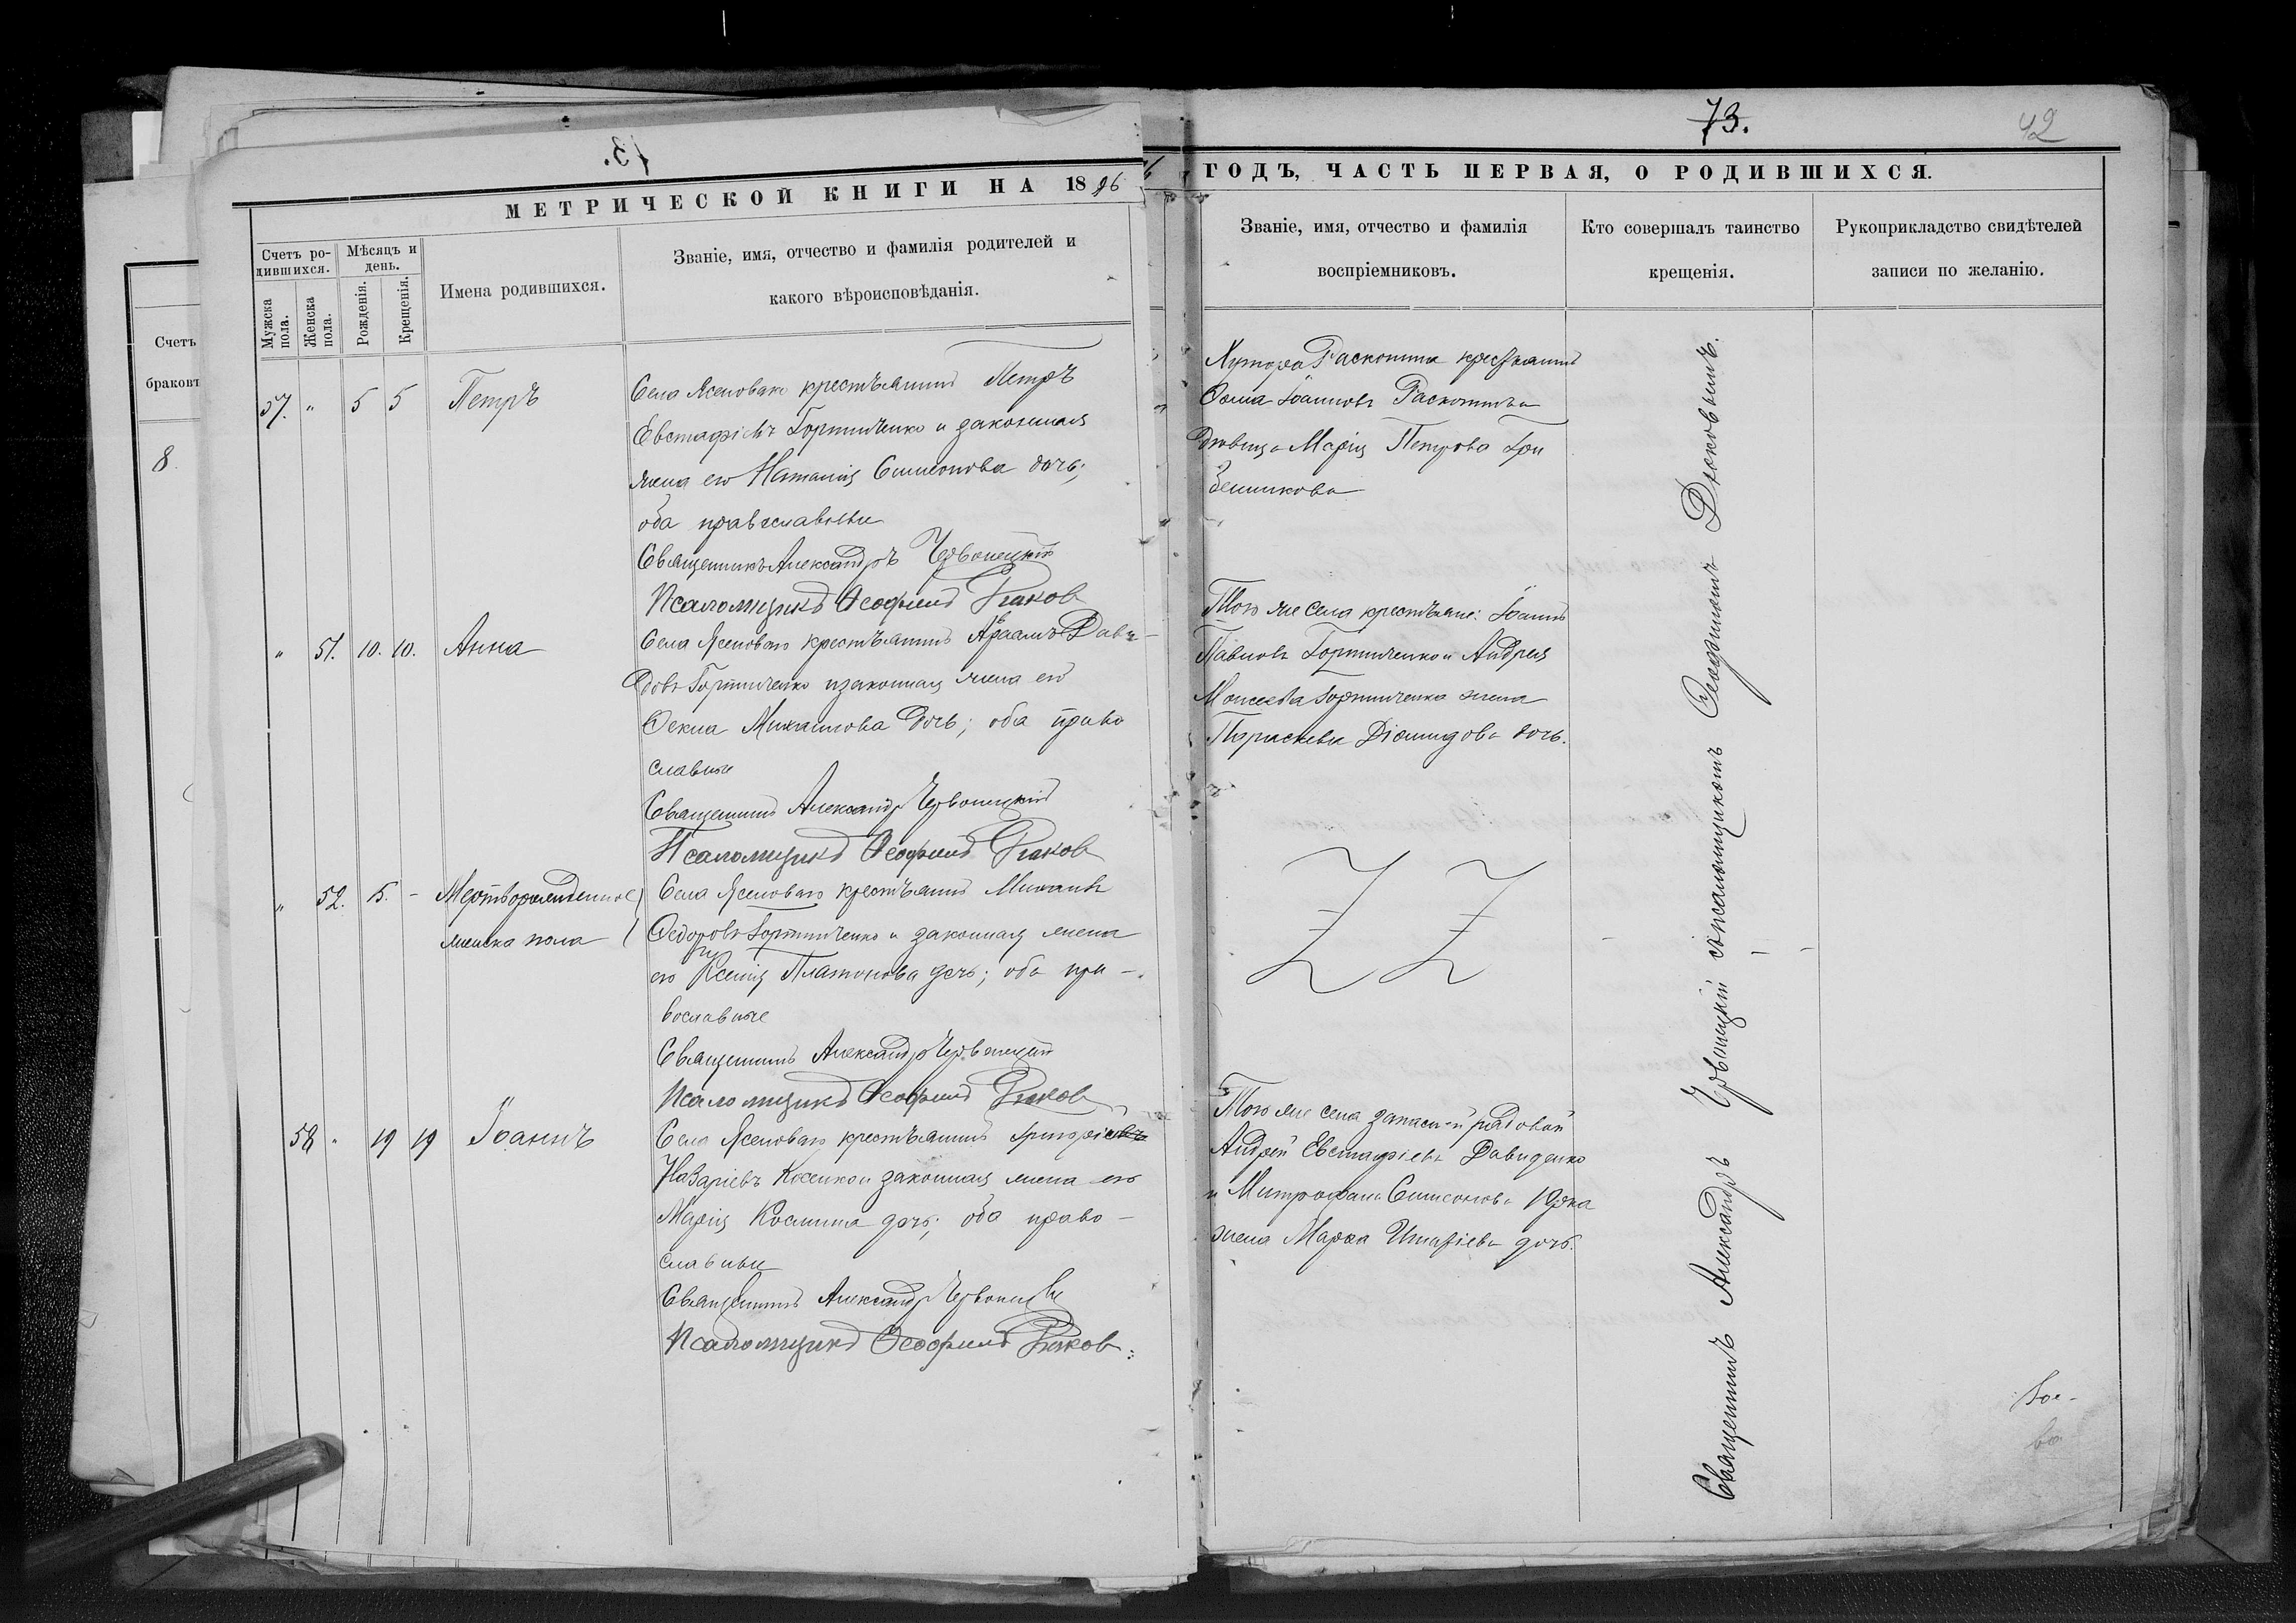 73.
42
МЕТРИЧЕСКОЙ КНИГИ НА 1896
ГОДЪ, ЧАСТЬ ПЕРВАЯ, О РОДИВШИХСЯ.
Счетъ
браковъ
8.
Счетъ ро-
дившихся.
Мужска
пола.
Женска
пола.
Мѣсяцъ и
день.
Рожденія.
Крещенія.
Имена родившихся.
Званіе, имя, отчество и фамилія родителей и
какого вѣроисповѣданія.
Званіе, имя, отчество и фамилія
воспріемниковъ.
Кто совершалъ таинство
крещенія.
Рукоприкладство свидѣтелей
записи по желанію.
57. " 5 5 Петръ
Села Ясеноваго крестьянинъ Петръ
Евстафіевъ Гортинченко и законная
жена его Наталія Симеонова дочь;
оба православные
Священникъ Александръ Червонецкій
Псаломщикъ Ѳеофилъ
Хутора крестьянинъ
Ѳома Іоанновъ и
дѣвица Марія Петрова
" 51. 10. 10. Анна
Села Ясеноваго крестьянинъ Авраамъ Дави-
довъ Гортинченко и законная жена его
Ѳекла Михаилова дочь; оба право
славные
Священникъ Александръ Червонецкій
Псаломщикъ Ѳеофилъ
Того же села крестьяне: Іоаннъ
Павловъ Гортинченко и Андрея
Моисеева Гортинченка жена
Параскева Діомидова дочь.
" 52. 15. - Мертворожденное
женска пола
Села Ясеноваго крестьянинъ Михаилъ
Ѳедоровъ Гортинченко и законная жена
его Ксенія Платонова дочь; оба пра-
вославные
Священникъ Александръ Червонецкій
Псаломщикъ Ѳеофилъ
58 " 19 19 Іоаннъ
Села Ясеноваго крестьянинъ Григорій
Назаріевъ и законная жена его
Марія Космина дочь; оба право-
славные
Священникъ Александръ Червонецкій
Псаломщикъ Ѳеофилъ
Того же села запасный рядовой
Андрей Евстафіевъ Давиденко
и Митрофана Симеонова
жена Марѳа дочь.
Священникъ Александръ Червонецкій съ псаломщикомъ